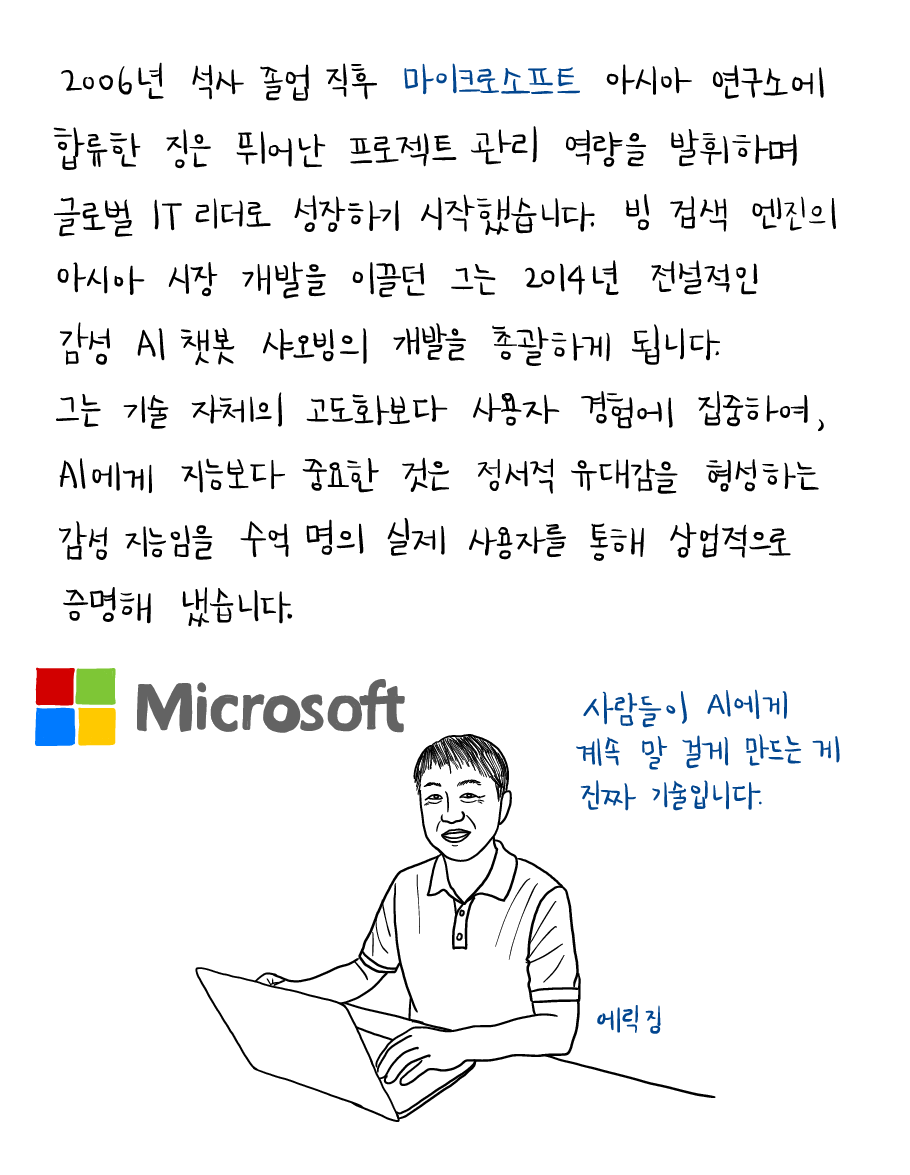 2006년 석사 졸업 직후 마이크로소프트 아시아 연구소에
합류한 징은 뛰어난 프로젝트 관리 역량을 발휘하며
글로벌 IT 리더로 성장하기 시작했습니다. 빙 검색 엔진의
아시아 시장 개발을 이끌던 그는 2014년 전설적인
감성 AI 챗봇 샤오빙의 개발을 총괄하게 됩니다.
그는 기술 자체의 고도화보다 사용자 경험에 집중하여,
AI에게 지능보다 중요한 것은 정서적 유대감을 형성하는
감성 지능임을 수억 명의 실제 사용자를 통해 상업적으로
증명해 냈습니다.
Microsoft
사람들이 AI에게
계속 말 걸게 만드는 게
진짜 기술입니다.
에릭 징